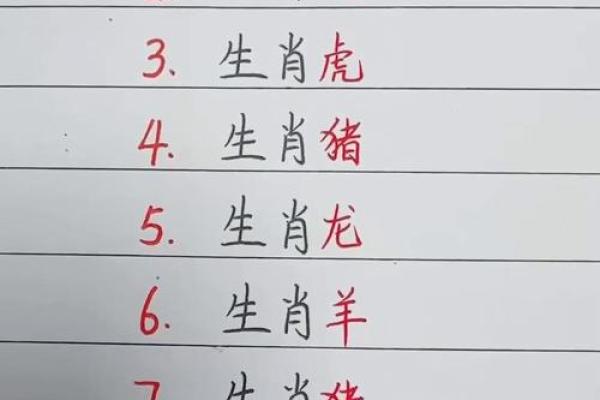 3. 生肖虎
4. 生肖猪
5. 生肖龙
6. 生肖羊
7. 生肖